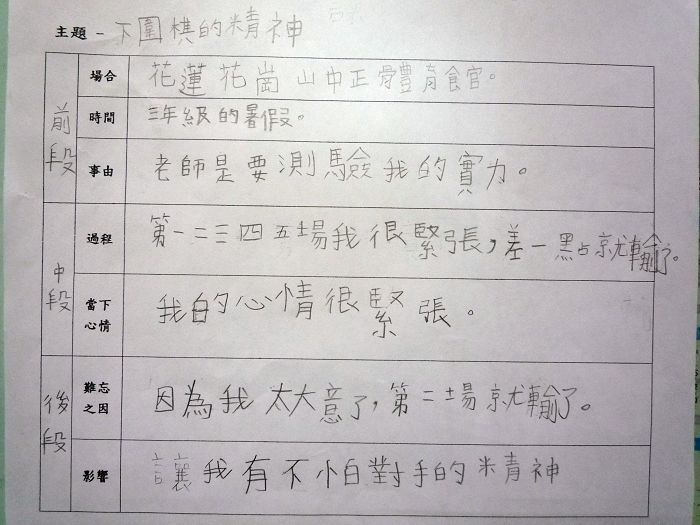 主題-下圍棋的精神
前段
場合
花蓮花崗山中正骨體育食官。
時間
三年級的暑假。
事由
老師是要測驗我的實力。
中段
過程
第一二三四五場我很緊張，差一點就輸了。
當下心情
我的心情很緊張。
後段
難忘之因
因為我太大意了，第二場就輸了。
影響
讓我有不怕對手的精神